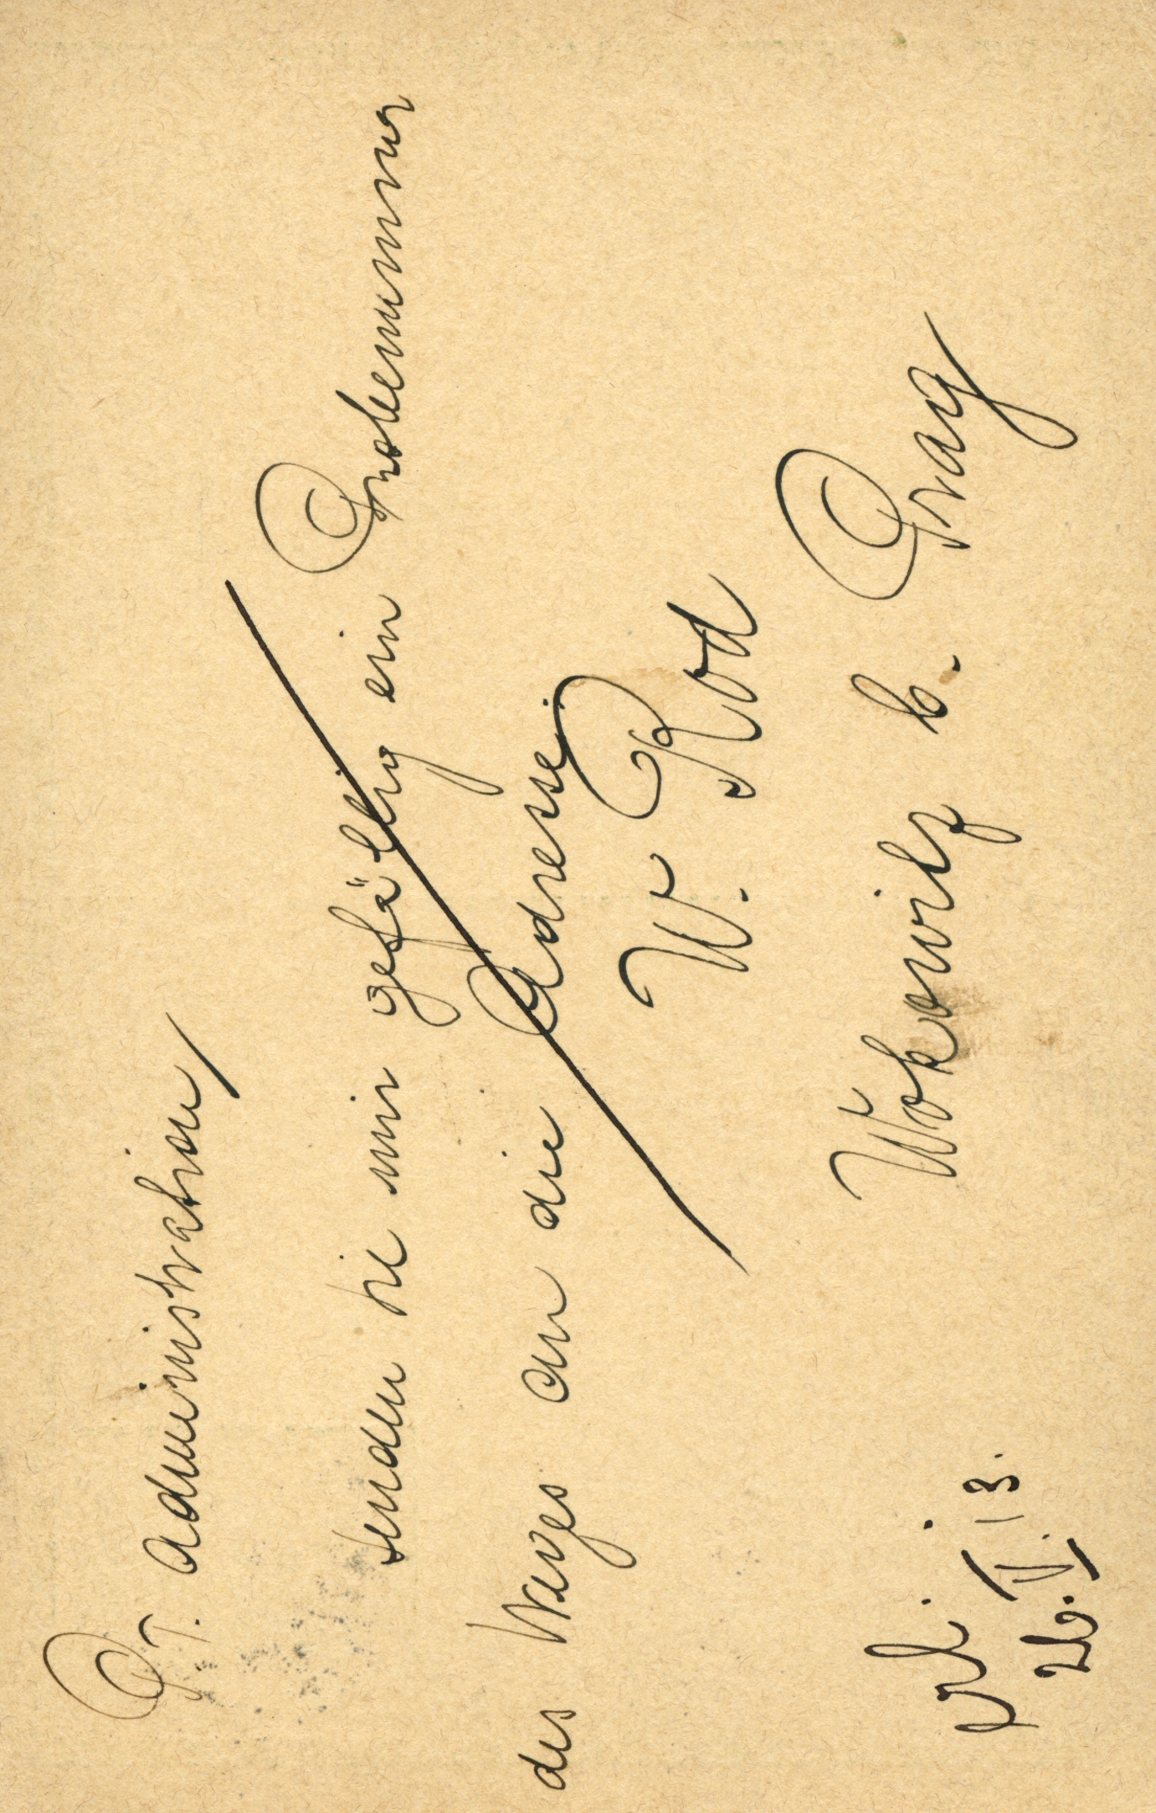 P. T. Administration
senden sie mir gefällig ein Probenummer
des Weges an die Adresse:
W. Rod
Wokowitz b. Prag
erl.
26./V. 13.